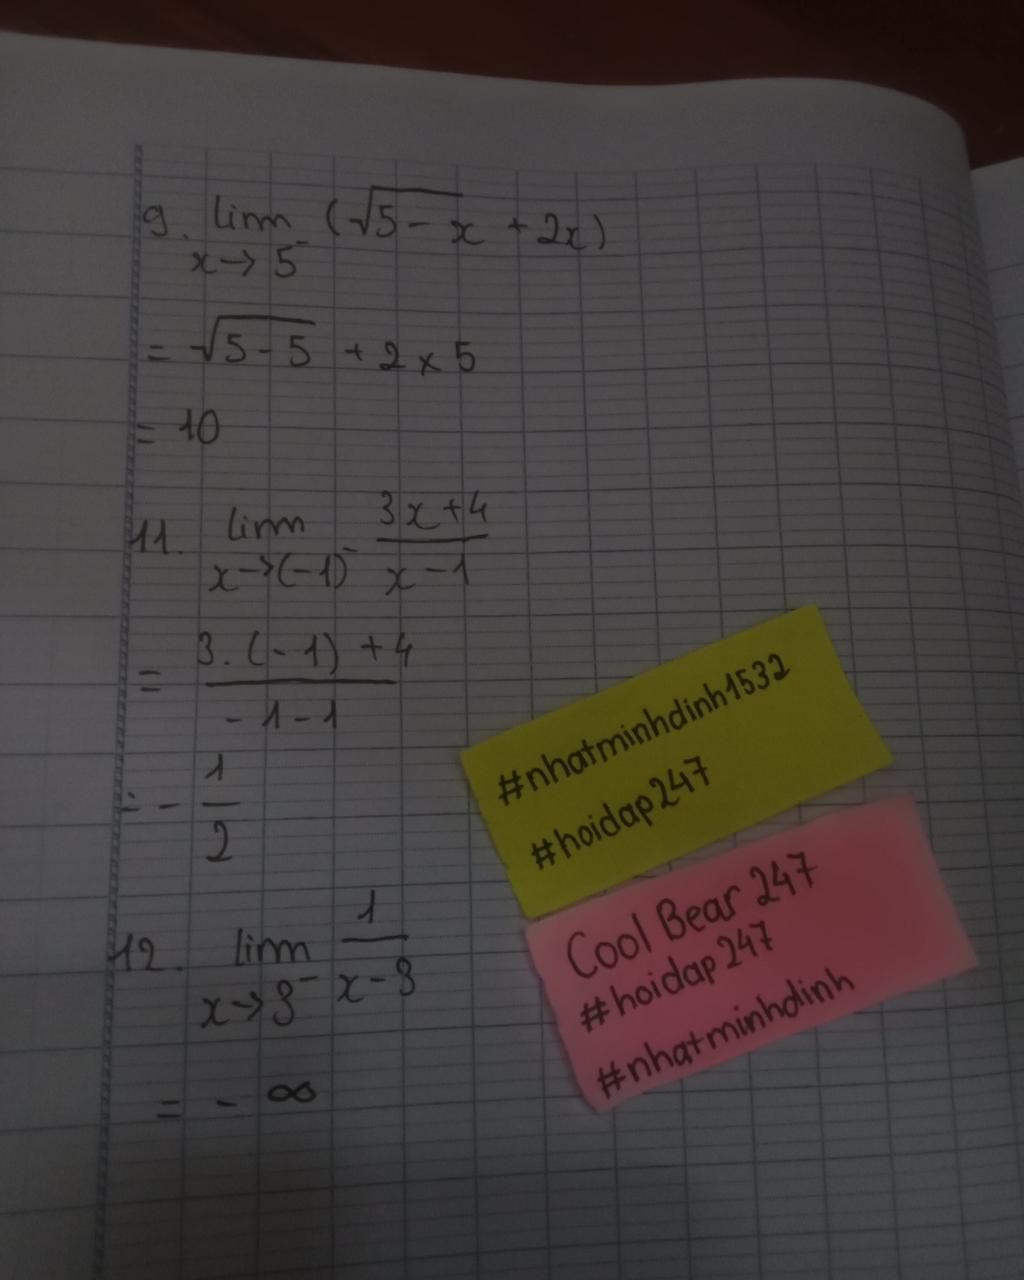 9. lim (√5-x + 2x)
x→5⁻
= √5-5 + 2 x 5
= 10
11. lim 3x+4
x→(-1)⁻ x-1
= 3.(-1)+4
-1-1
= - 1
2
12. lim 1
x→3⁻ x-3
= - ∞
#nhatminhdinh1532
#hoidap247
Cool Bear 247
#hoidap247
#nhatminhdinh